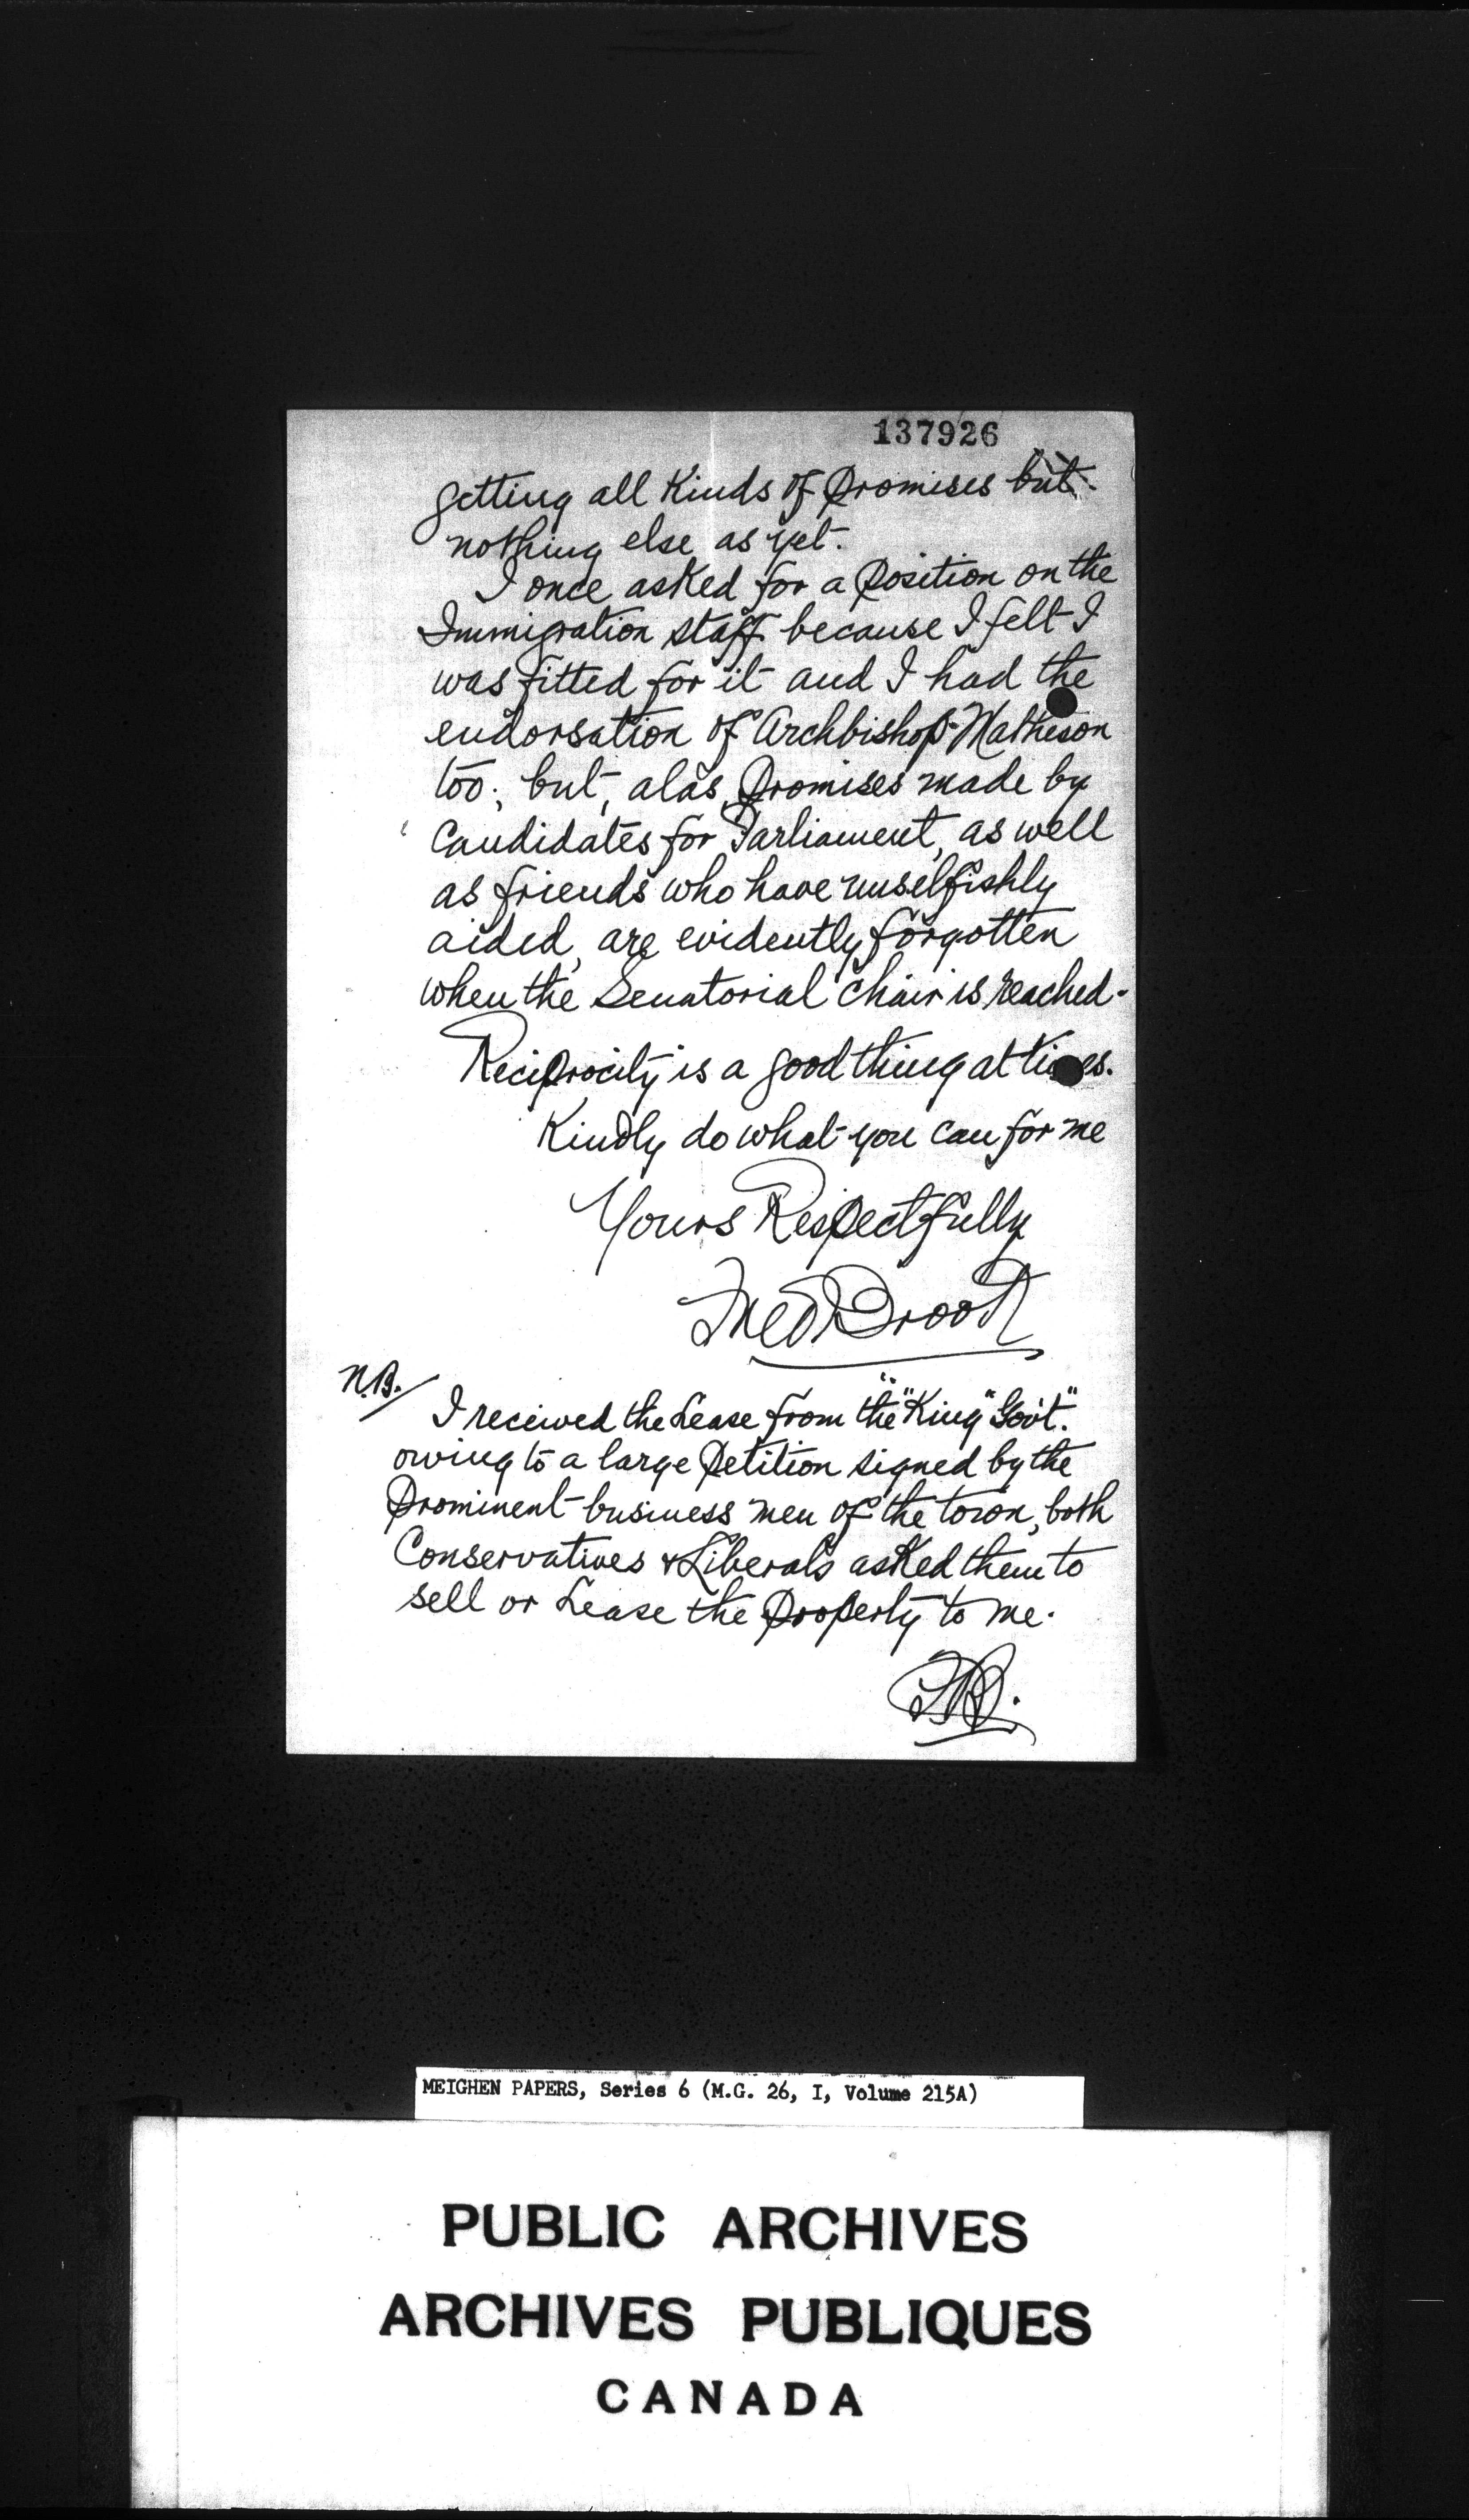 137926
getting all Kinds of Promises but
nothing else as yet.
I once asked for a Position on the
Immigration staff because I felt I
was fitted for it and I had the
endorsation of Archbishop Matheson
too; but, alas, Promises made by
Candidates for Parliament, as well
as friends who have unselfishly
aided, are evidently forgotten
when the Senatorial chair is reached.
Reciprocity is a good thing at times.
Kindly do what you can for me
Yours Respectfully
Fred Brooks
N.B. I received the Lease from the "King" Gov't."
owing to a large Petition signed by the
Prominent business men of the town, both
Conservatives & Liberals asked them to
sell or Lease the Property to me.
FB.
MEIGHEN PAPERS, Series 6 (M.G. 26, I, Volume 215A)
PUBLIC ARCHIVES
ARCHIVES PUBLIQUES
CANADA